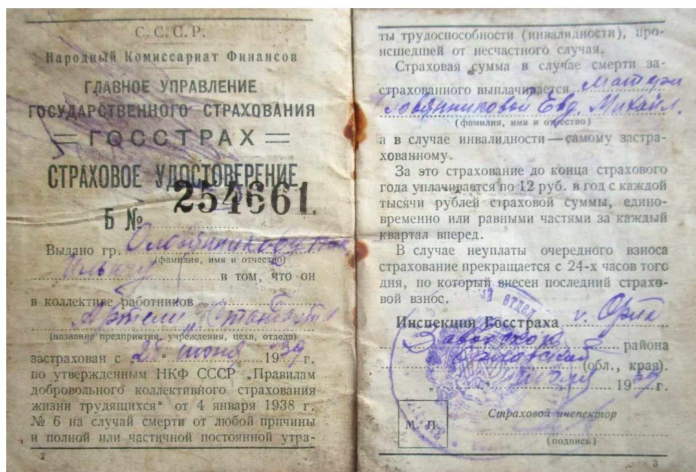 С. С. С. Р.
Народный Комиссариат Финансов
ГЛАВНОЕ УПРАВЛЕНИЕ
ГОСУДАРСТВЕННОГО СТРАХОВАНИЯ
— ГОССТРАХ —
СТРАХОВОЕ УДОСТОВЕРЕНИЕ
Б № 254661
Выдано гр.
(фамилия, имя и отчество)
в том, что он
в коллективе работников
Артели
(название предприятия, учреждения, цеха, отдела)
застрахован с 19 39 г.
по утвержденным НКФ СССР „Правилам
добровольного коллективного страхования
жизни трудящихся" от 4 января 1938 г.
№ 6 на случай смерти от любой причины
и полной или частичной постоянной утра-
2
ты трудоспособности (инвалидности), про-
исшедшей от несчастного случая.
Страховая сумма в случае смерти за-
страхованного выплачивается матери
Евд. Михайл.
(фамилия, имя и отчество)
а в случае инвалидности — самому застра-
хованному.
За это страхование до конца страхового
года уплачивается по 12 руб. в год с каждой
тысячи рублей страховой суммы, едино-
временно или равными частями за каждый
квартал вперед.
В случае неуплаты очередного взноса
страхование прекращается с 24-х часов того
дня, по который внесен последний страхо-
вой взнос.
Инспекция Госстраха г. Орла
района
(обл., края).
19 39 г.
Страховой инспектор
М. П.
(подпись)
3